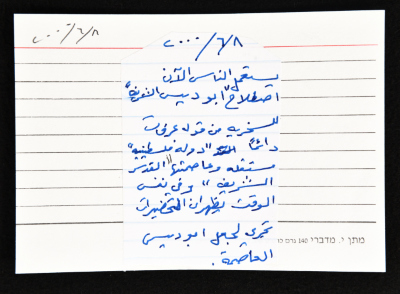 ٢٠٠٠/٦/٨
٢٠٠٠/٦/٨
يستعمل الناس الآن
اصطلاح "ابو ديس الشريف"
للسخرية من قول عرفات
دائماً "دولة فلسطينية
مستقلة وعاصمتها القدس
الشريف" وفي نفس
الوقت يظهر ان التحضيرات
تجري لجعل ابو ديس
العاصمة.
מתן י. מדברי 140 גרם